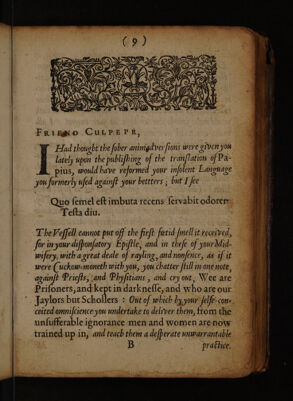 (9)
FRIEND CULPEPR,
I Had thought the sober animadversions were given you
lately upon the publishing of the translation of Pa-
pius, would have reformed your insolent Language
you formerly used against your bettters; but I see
Quo semel est imbuta recens servabit odorem
Testa diu.
The Vessell cannot put off the first fœtid smell it received,
for in your dispensatory Epistle, and in these of your Mid-
wifery, with a great deale of rayling, and nonsence, as if it
were Cuckow-moneth with you, you chatter still in one note,
against Priests, and Physitians, and cry out, Wee are
Prisoners, and kept in darknesse, and who are our
Jaylors but Schollers: Out of which by, your selfe-con-
ceited omniscience you undertake to deliver them, from the
unsufferable ignorance men and women are now
trained up in, and teach them a desperate unwarrantable
B practice.